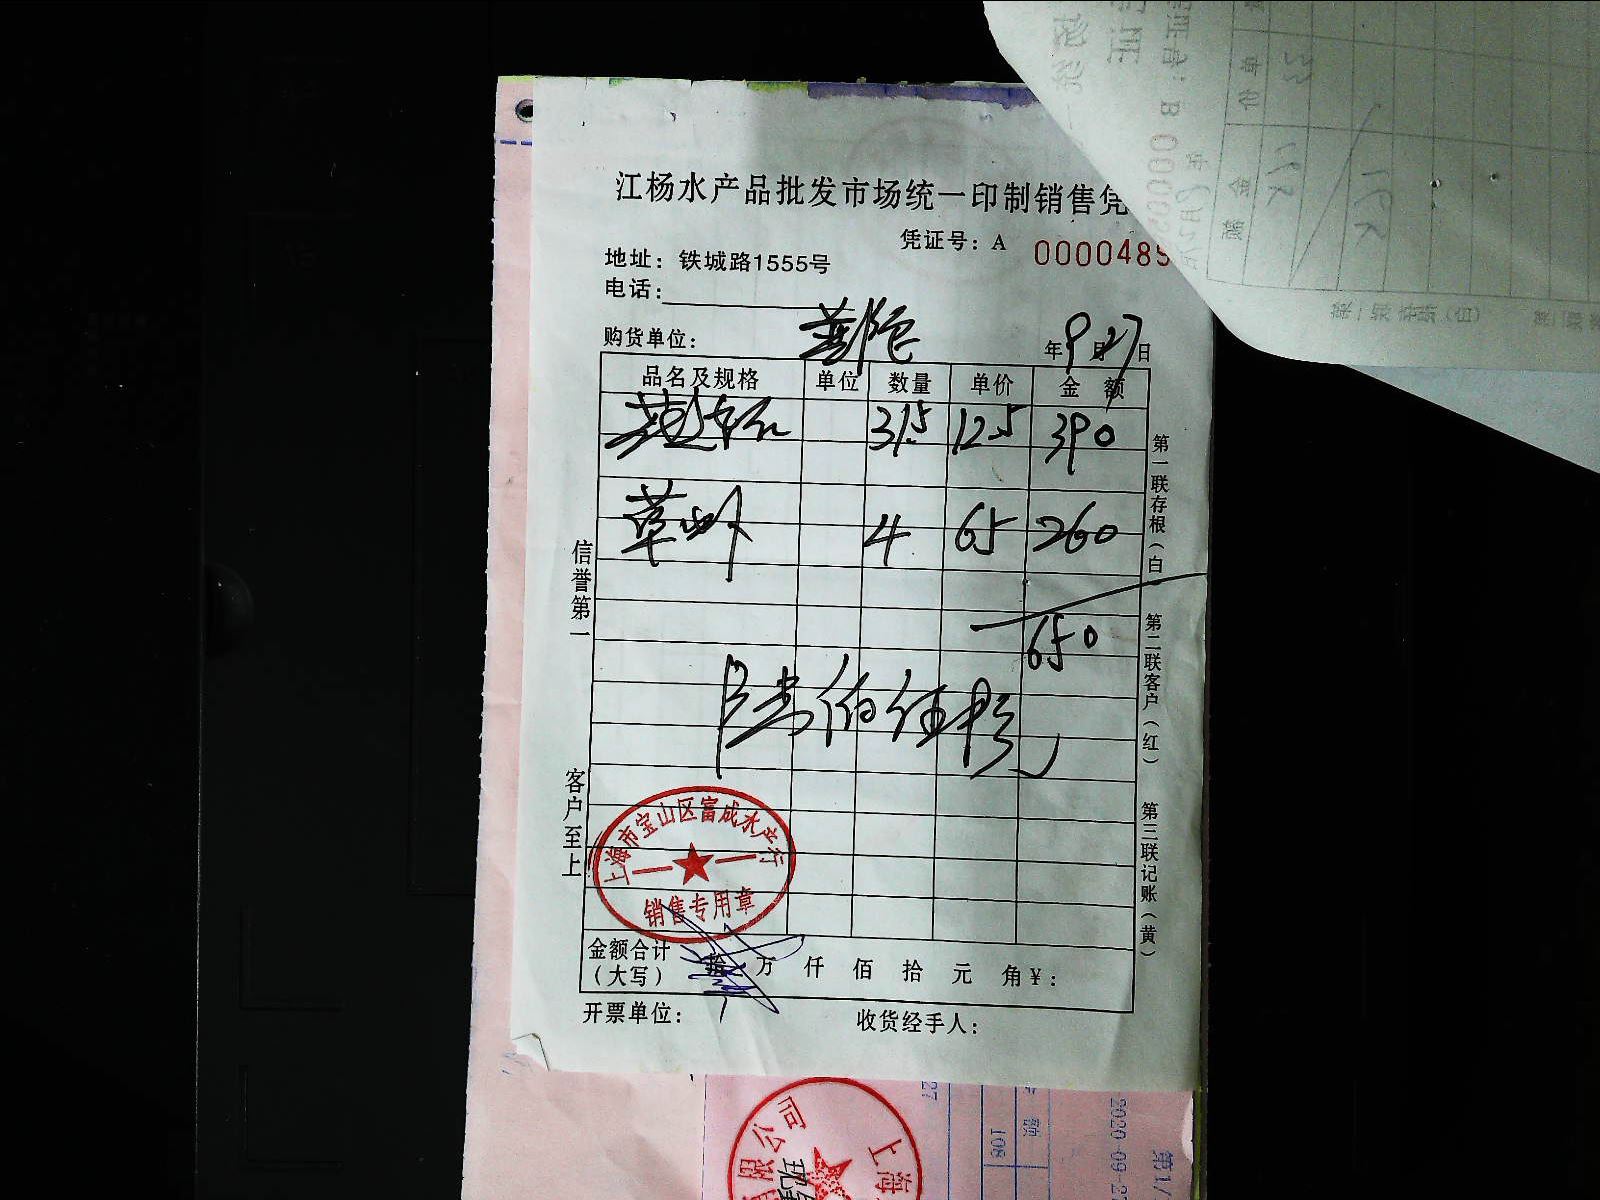 江杨水产品批发市场统一印制销售凭
凭证号：A 0000485
地址：铁城路1555号
电话：
购货单位：
年9月27日
品名及规格 单位 数量 单价 金额
31.5 12.5 390
草虾 4 65 260
650
陆佰伍拾元
信誉第一
客户至上
第一联存根（白）
第二联客户（红）
第三联记账（黄）
上海市宝山区富成水产行
销售专用章
金额合计（大写） 拾 万 仟 佰 拾 元 角 ¥：
开票单位：
收货经手人：
公司
上海
108
额
2020-09-2
27
第1/
B 0000
单价
金